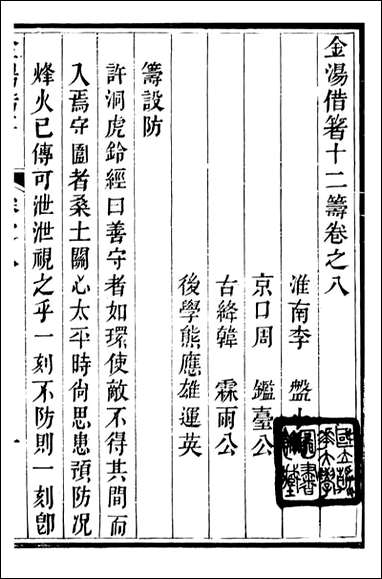 金湯借箸十二籌卷之八
淮南李 盤小
京口周 鑑臺公
古絳韓 霖雨公
後學熊應雄運英
籌設防
許洞虎鈴經曰善守者如環使敵不得其間而
入焉守圉者桑土關心太平時尙思患預防况
烽火已傳可泄泄視之乎一刻不防則一刻卽